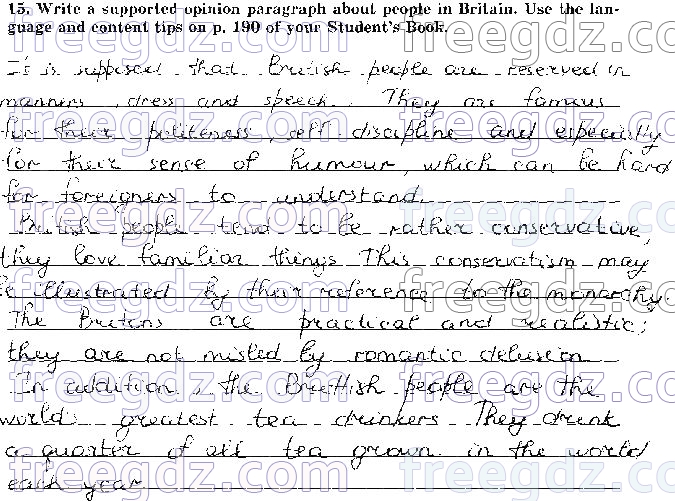 15. Write a supported opinion paragraph about people in Britain. Use the lan-
guage and content tips on p. 190 of your Student's Book.
It is supposed that British people are reserved in
manners, dress and speech. They are famous
for their politeness, self discipline and especially
for their sense of humour, which can be hard
for foreigners to understand.
British people tend to be rather conservative,
they love familiar things This conservatism may
be illustrated by their reference to the monarchy.
The Britons are practical and realistic;
they are not misled by romantic delusion
In addition, the Brittish people are the
world's greatest tea drinkers They drink
a quarter of all tea grown in the world
each year
freegdz.com